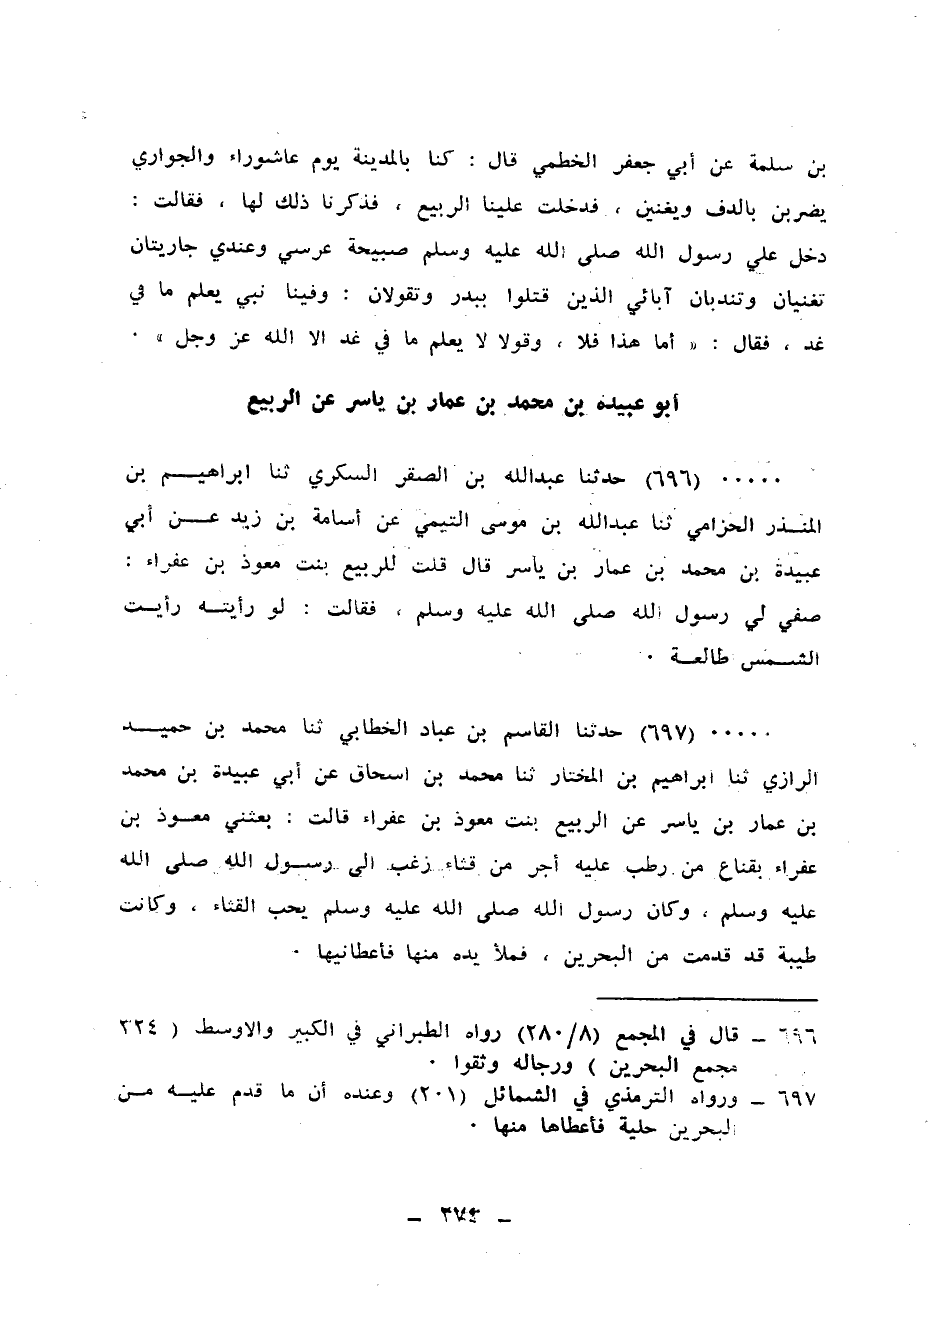 بن سلمة عن أبي جعفر الخطمي قال : كنا بالمدينة يوم عاشوراء والجواري
يضربن بالدف ويغنين ، فدخلت علينا الربيع ، فذكرنا ذلك لها ، فقالت :
دخل علي رسول الله صلى الله عليه وسلم صبيحة عرسي وعندي جاريتان
تغنيان وتندبان آبائي الذين قتلوا ببدر وتقولان : وفينا نبي يعلم ما في
غد ، فقال : « أما هذا فلا ، وقولا لا يعلم ما في غد الا الله عز وجل » ٠
أبو عبيدة بن محمد بن عمار بن ياسر عن الربيع
٠٠٠٠٠ (٦٩٦) حدثنا عبدالله بن الصقر السكري ثنا ابراهيم بن
المنذر الحزامي ثنا عبدالله بن موسى التيمي عن أسامة بن زيد عن أبي
عبيدة بن محمد بن عمار بن ياسر قال قلت للربيع بنت معوذ بن عفراء :
صفي لي رسول الله صلى الله عليه وسلم ، فقالت : لو رأيته رأيت
الشمس طالعة ٠
٠٠٠٠٠ (٦٩٧) حدثنا القاسم بن عباد الخطابي ثنا محمد بن حميد
الرازي ثنا ابراهيم بن المختار ثنا محمد بن اسحاق عن أبي عبيدة بن محمد
بن عمار بن ياسر عن الربيع بنت معوذ بن عفراء قالت : بعثني معوذ بن
عفراء بقناع من رطب عليه أجر من قثاء زغب الى رسول الله صلى الله
عليه وسلم ، وكان رسول الله صلى الله عليه وسلم يحب القثاء ، وكانت
طيبة قد قدمت من البحرين ، فملأ يده منها فأعطانيها ٠
٦٩٦ ــ قال في المجمع (٢٨٠/٨) رواه الطبراني في الكبير والاوسط ( ٣٢٤
مجمع البحرين ) ورجاله وثقوا ٠
٦٩٧ ــ ورواه الترمذي في الشمائل (٢٠١) وعنده أن ما قدم عليه من
البحرين حلية فأعطاها منها ٠
ــ ٢٧٤ ــ